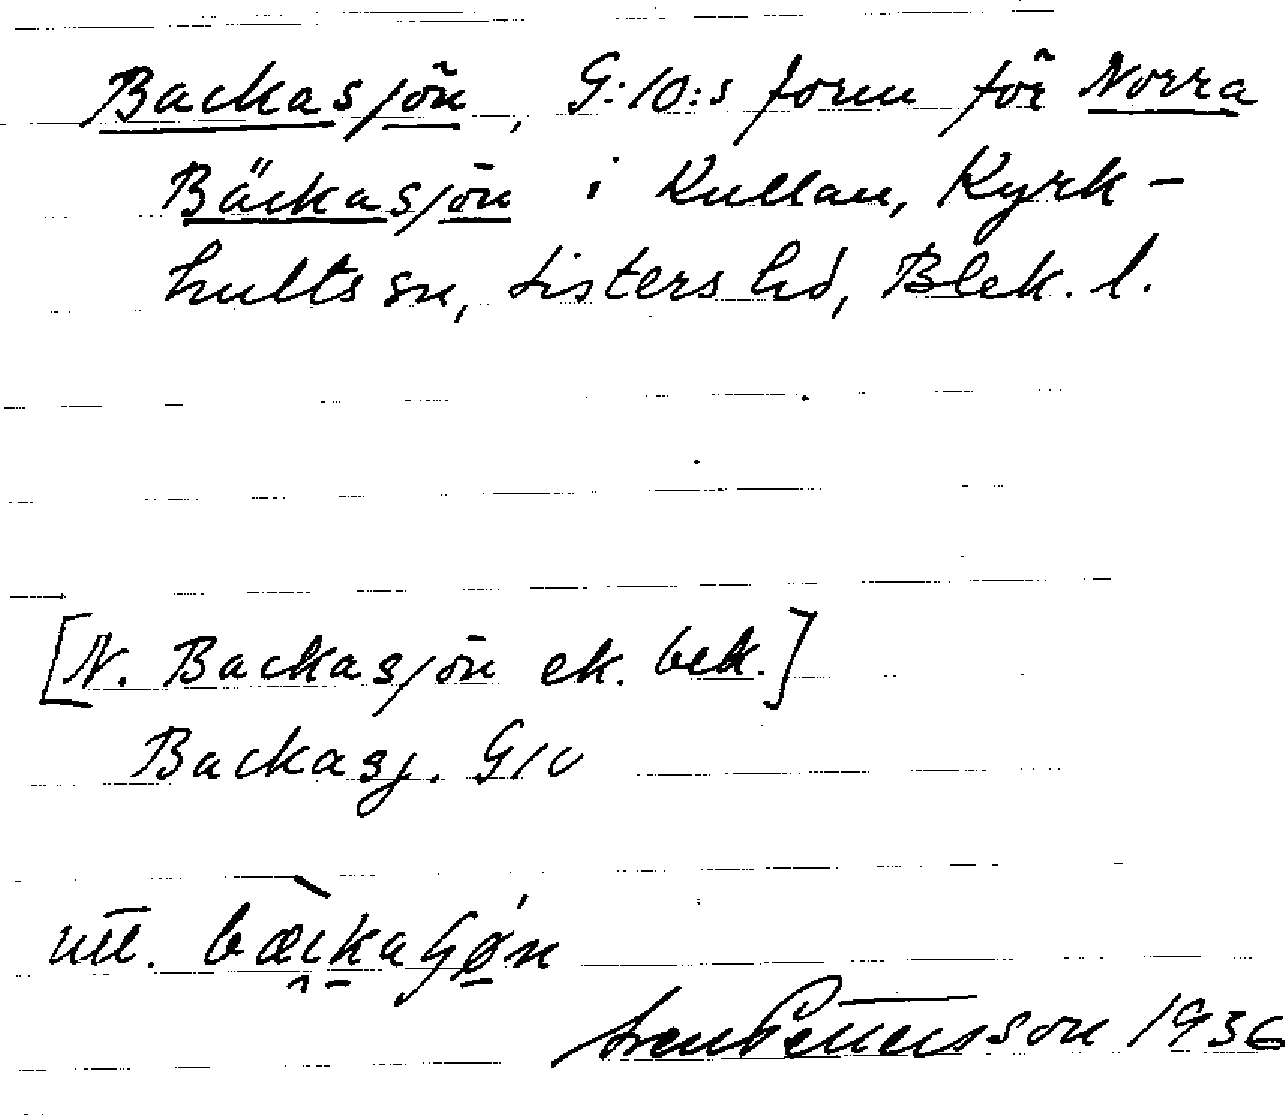 Backasjön, G:10:s form för Norra
Bäckasjön i Kullan, Kyrk-
hults sn, Listers hd, Blek. l.
[N. Backasjön ek. bek.]
Backasj. G10
utt.
Sven Pettersson 1936